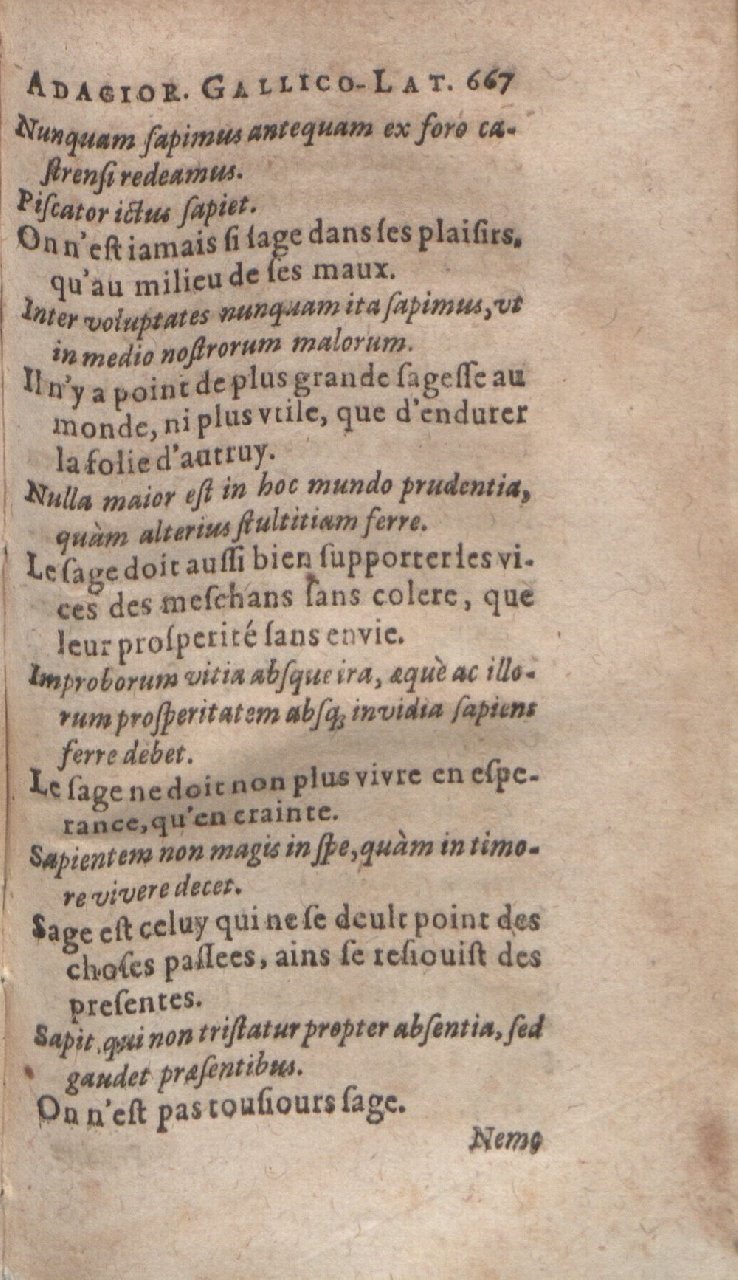 ADAGIOR. GALLICO-LAT. 667
Nunquam ſapimus antequam ex foro ca-
ſtrenſi redeamus.
Piſcator ictus ſapiet.
On n'eſt iamais ſi ſage dans ſes plaiſirs,
qu'au milieu de ſes maux.
Inter voluptates nunquam ita ſapimus, vt
in medio noſtrorum malorum.
Il n'y a point de plus grande ſageſſe au
monde, ni plus vtile, que d'endurer
la folie d'autruy.
Nulla maior eſt in hoc mundo prudentia,
quàm alterius ſtultitiam ferre.
Le ſage doit auſſi bien ſupporter les vi-
ces des meſchans ſans colere, que
leur proſperité ſans envie.
Improborum vitia abſque ira, æquè ac illo-
rum proſperitatem abſq; invidia ſapiens
ferre debet.
Le ſage ne doit non plus vivre en eſpe-
rance, qu'en crainte.
Sapientem non magis in ſpe, quàm in timo-
re vivere decet.
Sage eſt celuy qui ne ſe deult point des
choſes paſſees, ains ſe reſiouiſt des
preſentes.
Sapit, qui non triſtatur propter abſentia, ſed
gaudet præſentibus.
On n'eſt pas touſiours ſage.
Nemo